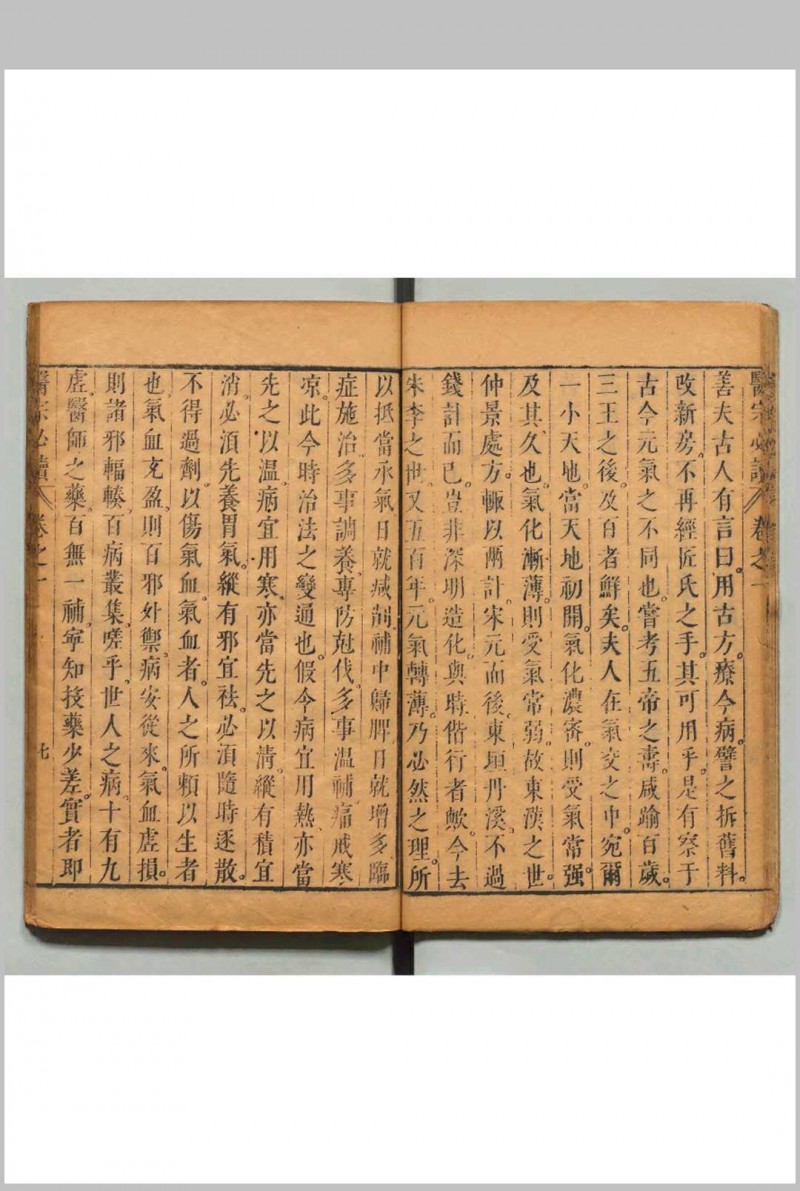 醫宗必讀 卷之一
善夫古人有言曰。用古方。療今病。譬之拆舊料。
改新房。不再經匠氏之手。其可用乎。是有察于
古今元氣之不同也。嘗考五帝之壽。咸踰百歲。
三王之後。及百者鮮矣。夫人在氣交之中。宛爾
一小天地。當天地初開。氣化濃密。則受氣常强。
及其久也。氣化漸薄。則受氣常弱。故東漢之世。
仲景處方。輒以兩計。宋元而後。東垣丹溪。不過
錢計而已。豈非深明造化。與時偕行者歟。今去
朱李之世。又五百年。元氣轉薄。乃必然之理。所
以抵當承氣。日就減削。補中歸脾。日就增多。臨
症施治。多事調養。專防尅伐。多事温補。痛戒寒
凉。此今時治法之變通也。假令病宜用熱。亦當
先之以温。病宜用寒。亦當先之以清。縱有積宜
消。必須先養胃氣。縱有邪宜祛。必須隨時逐散。
不得過劑。以傷氣血。氣血者。人之所賴以生者
也。氣血充盈。則百邪外禦。病安從來。氣血虛損。
則諸邪輻輳。百病叢集。嗟乎。世人之病。十有九
虛。醫師之藥。百無一補。寧知投藥少差。實者即
醫宗必讀 卷之一 七